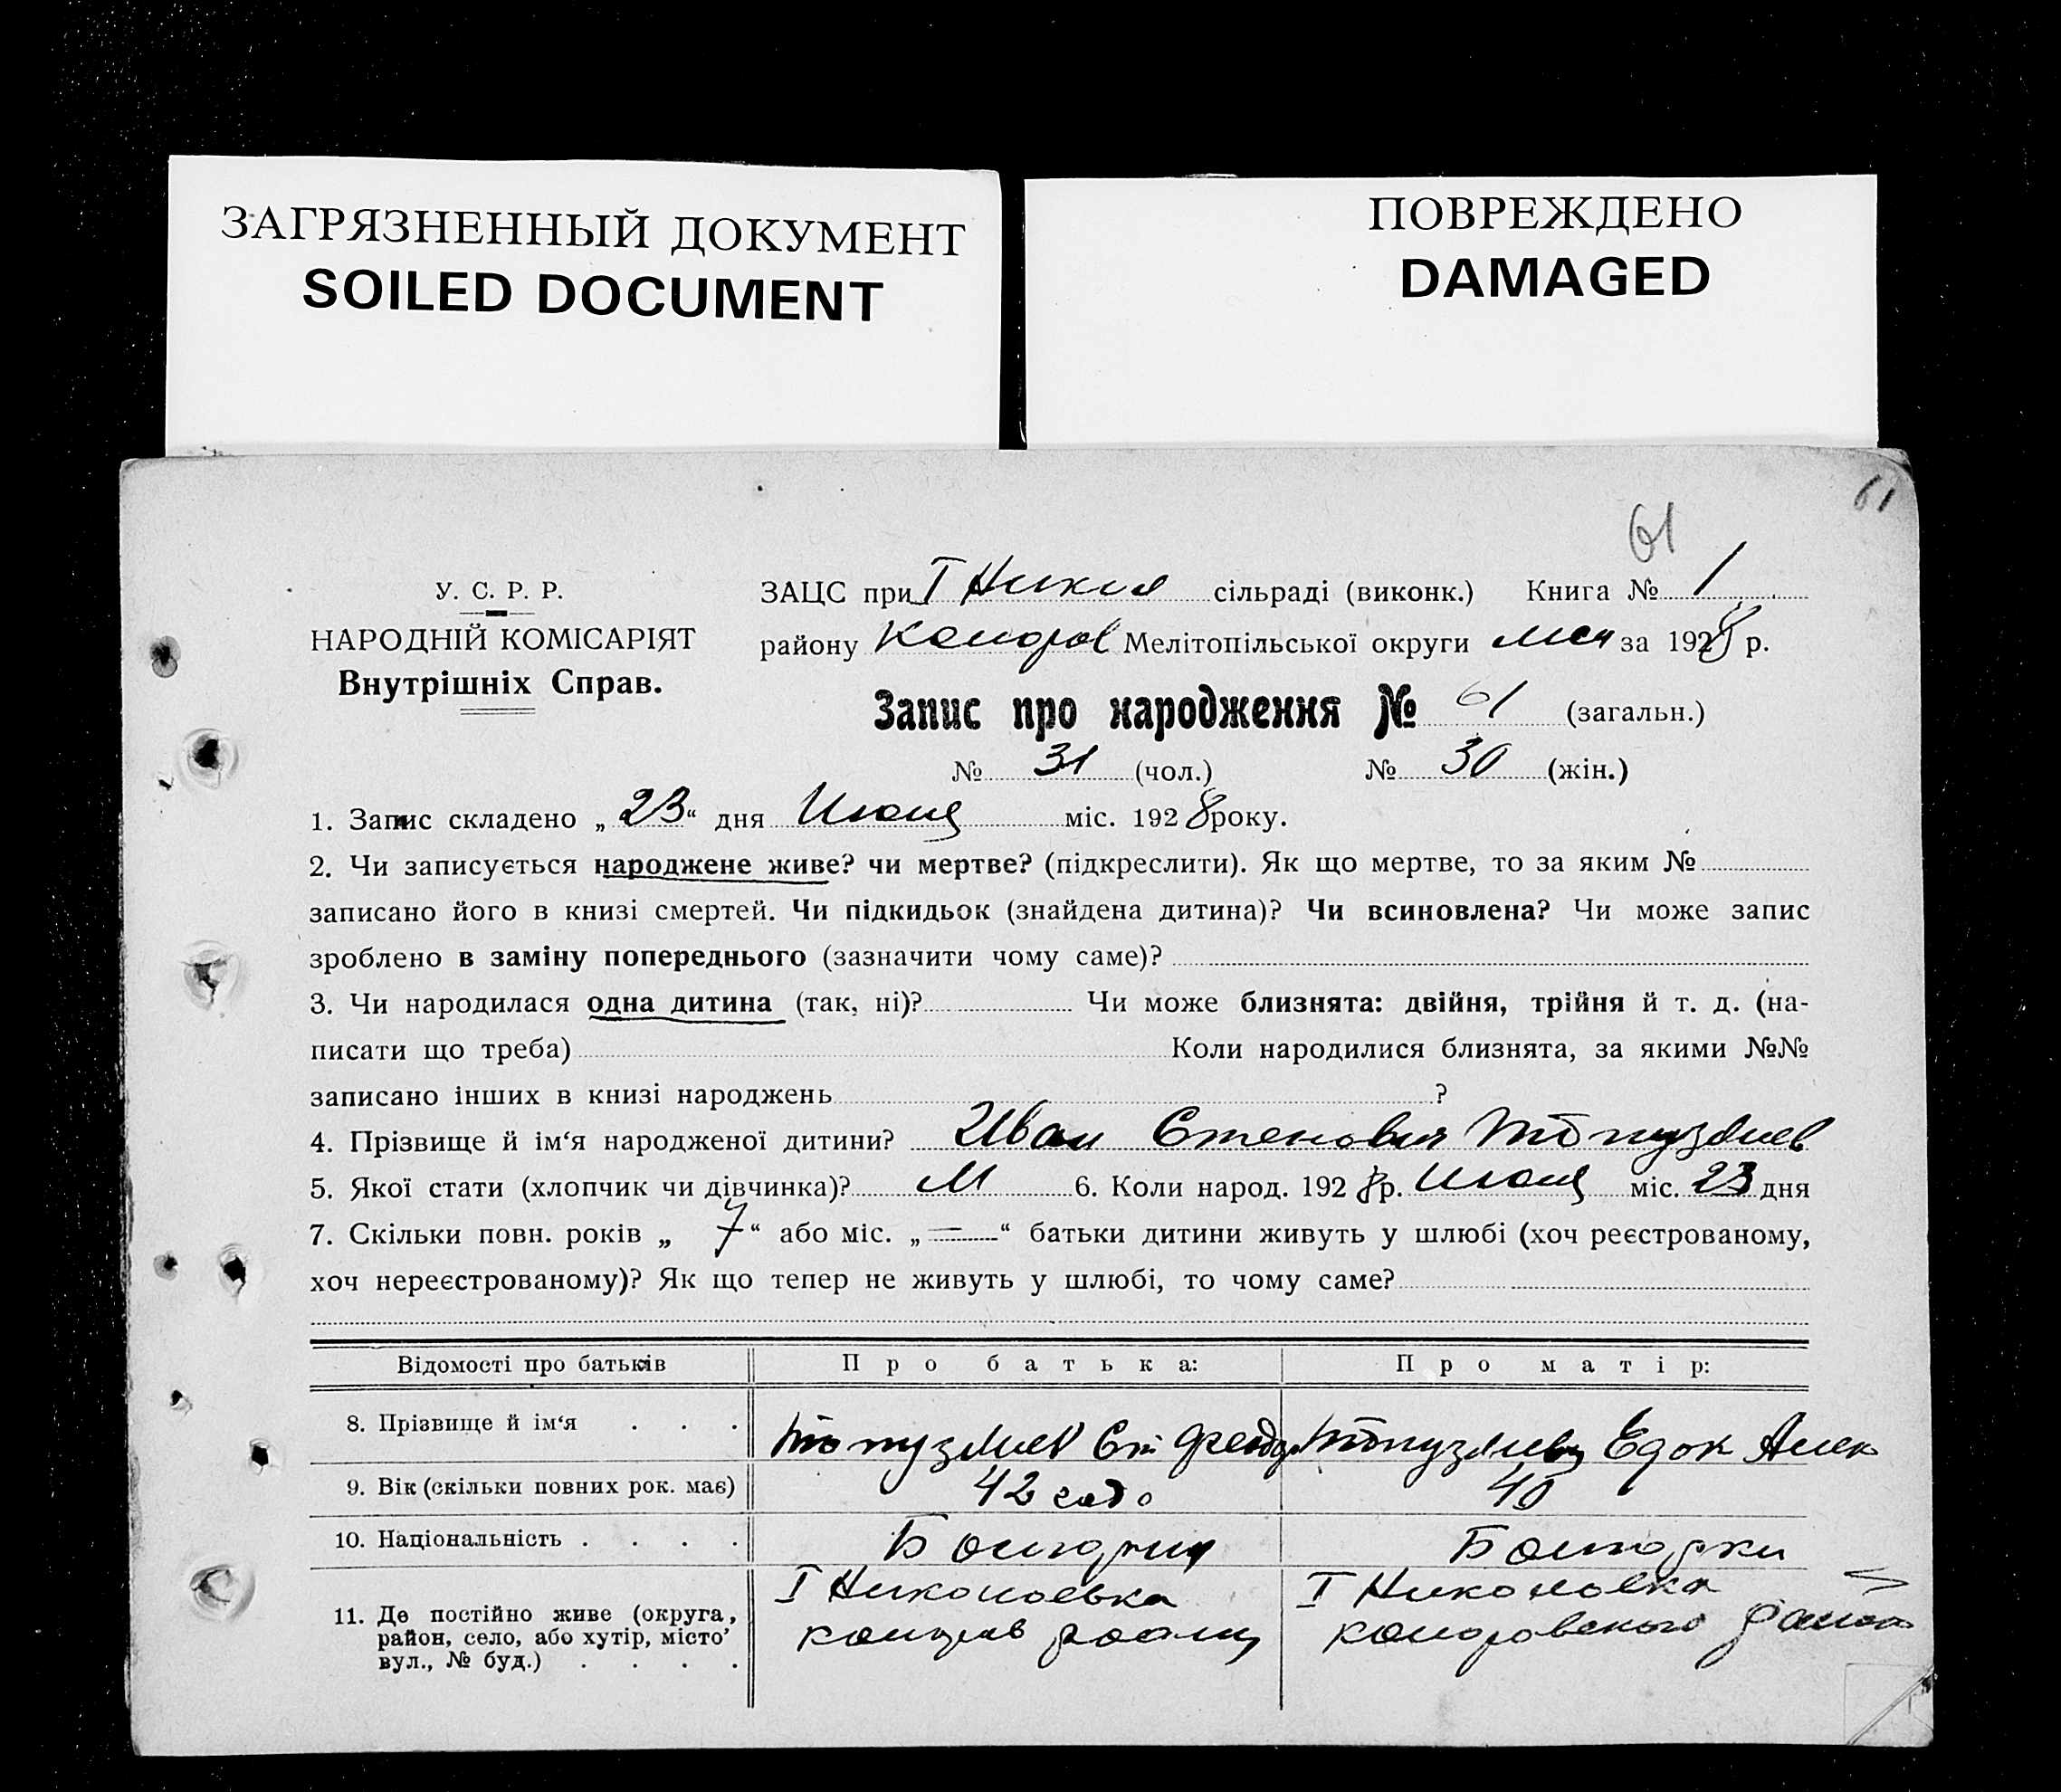 ЗАГРЯЗНЕННЫЙ ДОКУМЕНТ
SOILED DOCUMENT
ПОВРЕЖДЕНО
DAMAGED
61
61
У. С. Р. Р.
НАРОДНІЙ КОМІСАРІЯТ
Внутрішніх Справ.
ЗАЦС при І Никол сільраді (виконк.) Книга № 1
району Мелітопільської округи за 1928 р.
Запис про народження № 61 (загальн.)
№ 31 (чол.) № 30 (жін.)
1. Запис складено „23“ дня Июня міс. 1928 року.
2. Чи записується народжене живе? чи мертве? (підкреслити). Як що мертве, то за яким №
записано його в книзі смертей. Чи підкидьок (знайдена дитина)? Чи всиновлена? Чи може запис
зроблено в заміну попереднього (зазначити чому саме)?
3. Чи народилася одна дитина (так, ні)? Чи може близнята: двійня, трійня й т. д. (на-
писати що треба) Коли народилися близнята, за якими №№
записано інших в книзі народжень ?
4. Прізвище й ім‘я народженої дитини? Иван Степанович Топузлиев
5. Якої стати (хлопчик чи дівчинка)? М 6. Коли народ. 1928 р. Июня міс. 23 дня
7. Скільки повн. років „ 7 “ або міс. „ — “ батьки дитини живуть у шлюбі (хоч реєстрованому,
хоч нереєстрованому)? Як що тепер не живуть у шлюбі, то чому саме?
Відомості про батьків Про батька: Про матір:
8. Прізвище й ім‘я . . . Топузлиев Ст Федор Топузлиева Едок Алек
9. Вік (скільки повних рок. має) 42 годо 40
10. Національність . . . . Болгарин Болгарки
11. Де постійно живе (округа, район, село, або хутір, місто’ вул., № буд.) . . . .
І Николоевка І Николовка